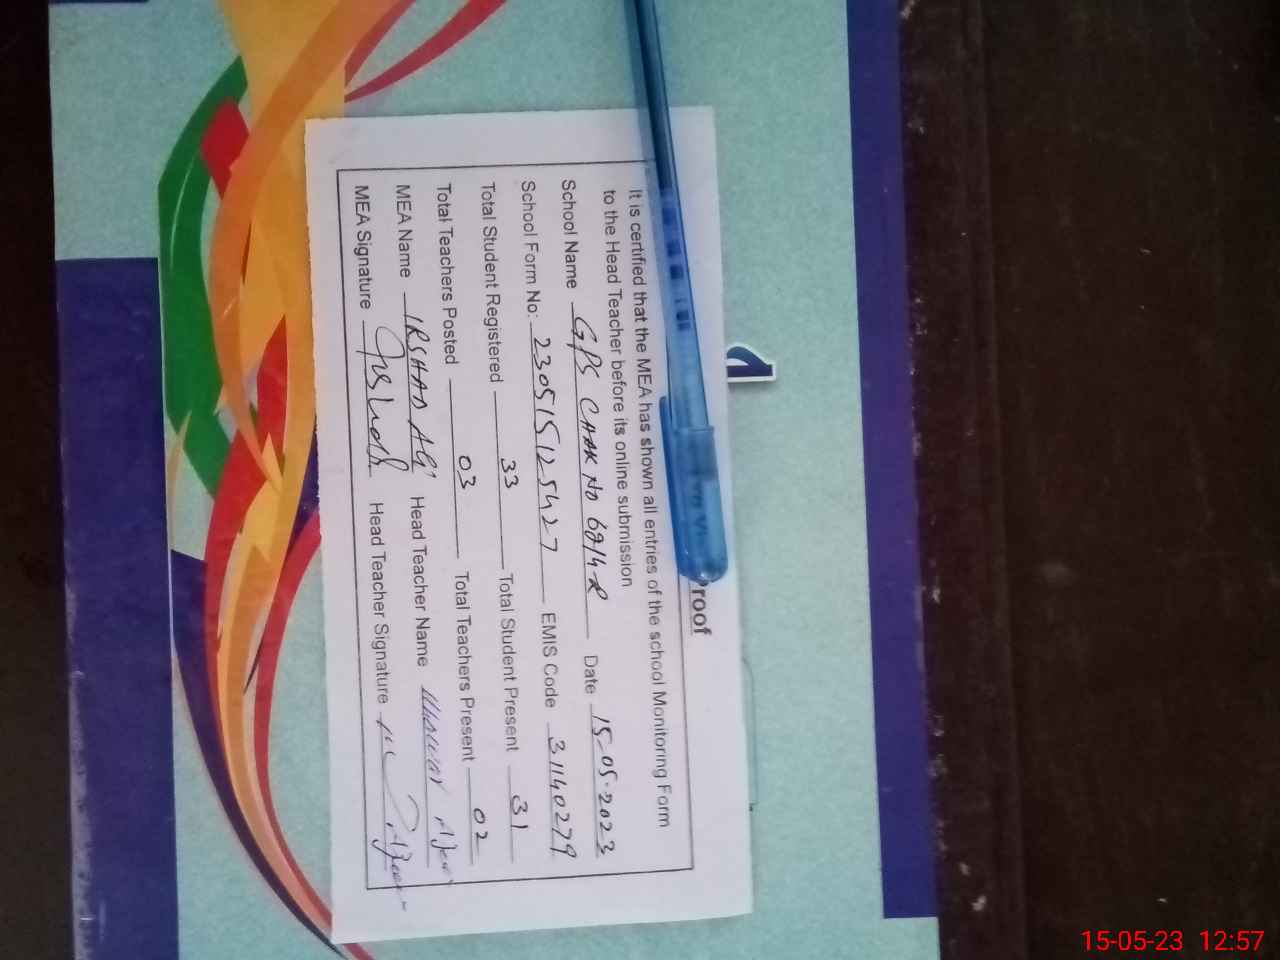 Proof
It is certified that the MEA has shown all entries of the school Monitoring Form
to the Head Teacher before its online submission
School Name GPS CHAK NO 68/4-R Date 15-05-2023
School Form No: 230515125427 EMIS Code 31140279
Total Student Registered 33 Total Student Present 31
Total Teachers Posted 03 Total Teachers Present 02
MEA Name IRSHAD ALI Head Teacher Name
MEA Signature Irshad Head Teacher Signature
15-05-23 12:57